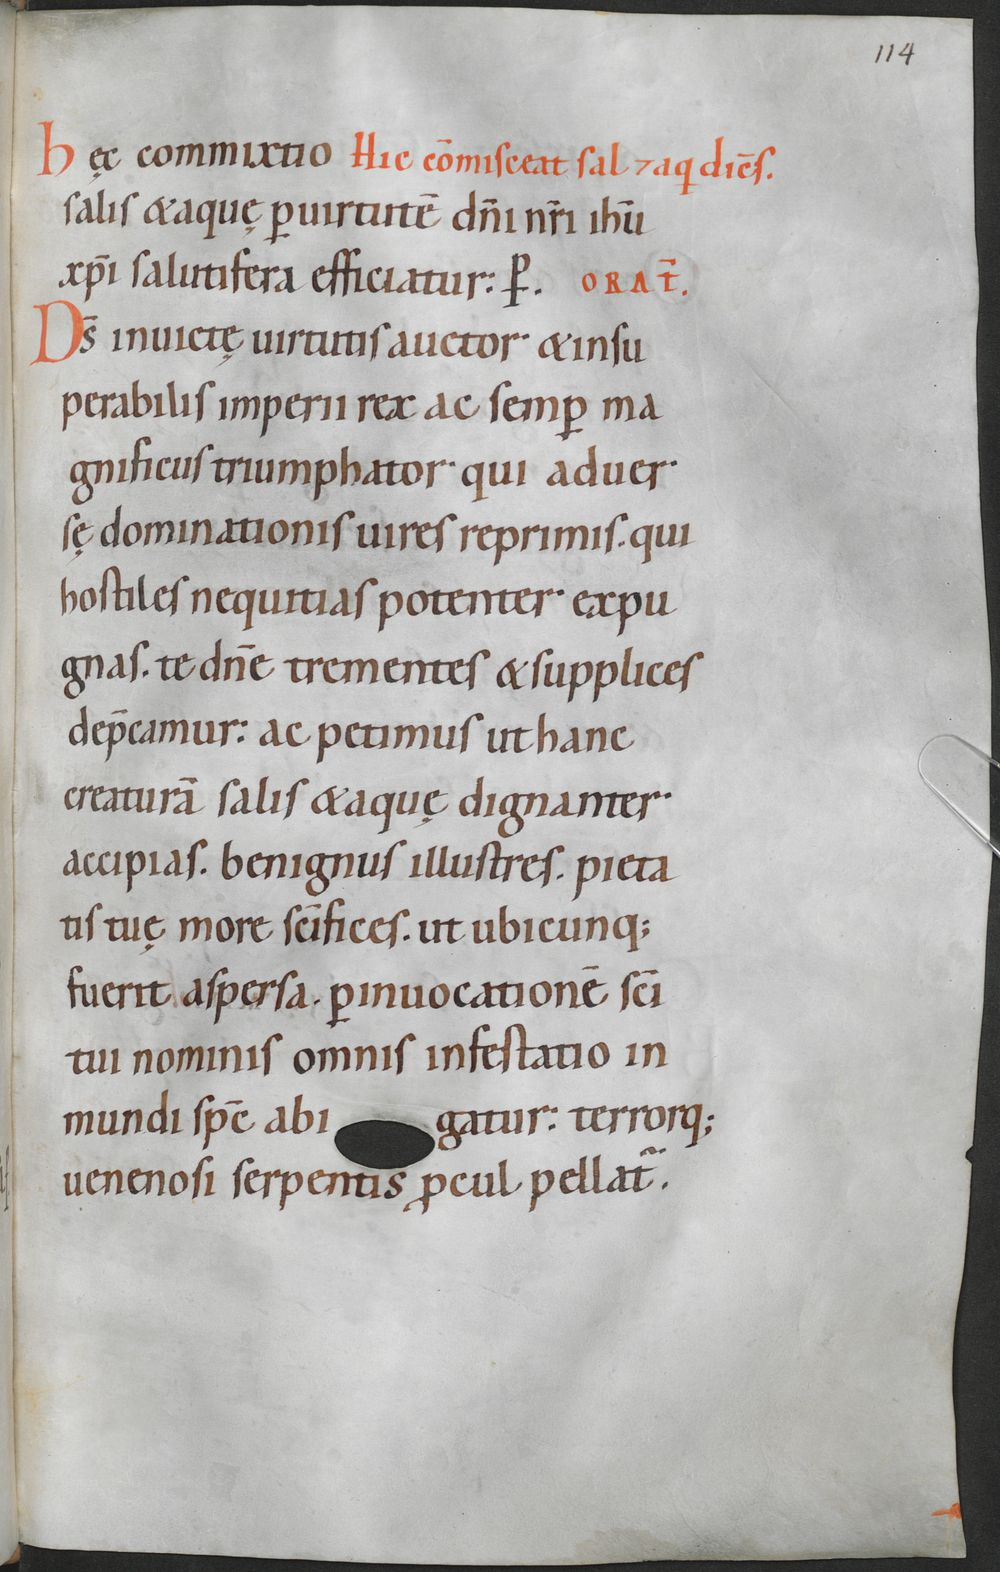 114
hęc commixtio Hic cōmisceat sal ⁊ aq̄ diēs.
salis &aquę ꝑuirtutē dn̄i nr̄i ihū
xp̄i salutifera efficiatur: ꝑ. ORAT̄.
Ds̄ inuictę uirtutis auctor· &insu
perabilis imperii rex ac semꝑ ma
gnificus triumphator· qui aduer·
sę dominationis uires reprimis. qui
hostiles nequitias potenter· expu
gnas. te dn̄e trementes &supplices
dep̄camur: ac petimus ut hanc
creaturā salis &aquę dignanter·
accipias. benignus illustres. pieta
tis tuę more sc̄ifices. ut ubicunq;
fuerit aspersa. ꝑinuocationē sc̄i
tui nominis omnis infestatio in
mundi sp̄c abi gatur: terrorq;
uenenosi serpentis ꝓcul pellat̄.